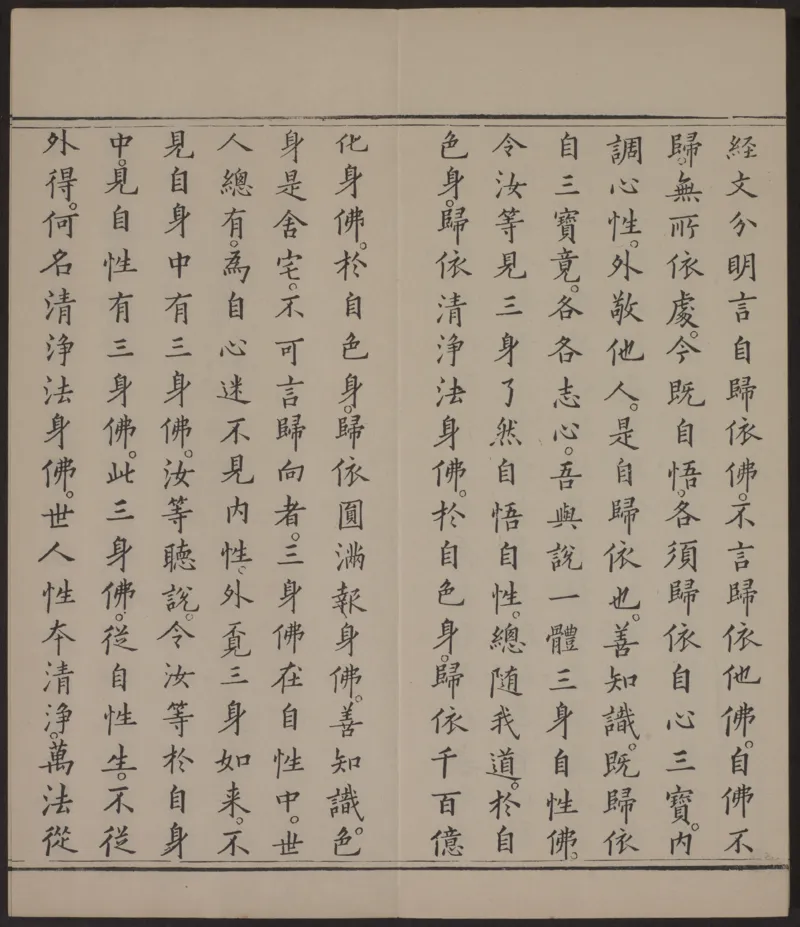 経文分明言自歸依佛。不言歸依他佛。自佛不
歸。無所依處。今既自悟。各須歸依自心三寶。内
調心性。外敬他人。是自歸依也。善知識。既歸依
自三寶竟。各各志心。吾與說一體三身自性佛。
令汝等見三身了然自悟自性。總随我道。於自
色身。歸依清淨法身佛。於自色身。歸依千百億
化身佛。於自色身。歸依圓滿報身佛。善知識。色
身是舍宅。不可言歸向者。三身佛在自性中。世
人總有。為自心迷不見内性。外覔三身如来。不
見自身中有三身佛。汝等聽說。令汝等於自身
中。見自性有三身佛。此三身佛。從自性生。不從
外得。何名清淨法身佛。世人性本清淨。萬法從